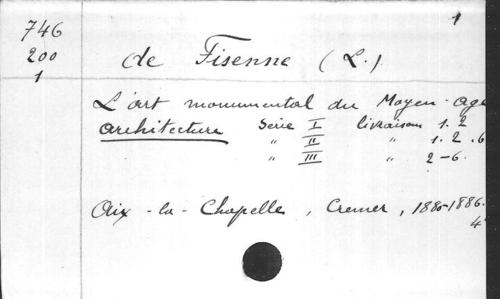 746
200
1
1
de Fisenne (L.)
L'art monumental du Moyen-age
architecture Serie I livraison 1.2
" II " 1.2.6
" III " 2-6.
Aix-la-Chapelle, Cremer, 1880-1886.
4°